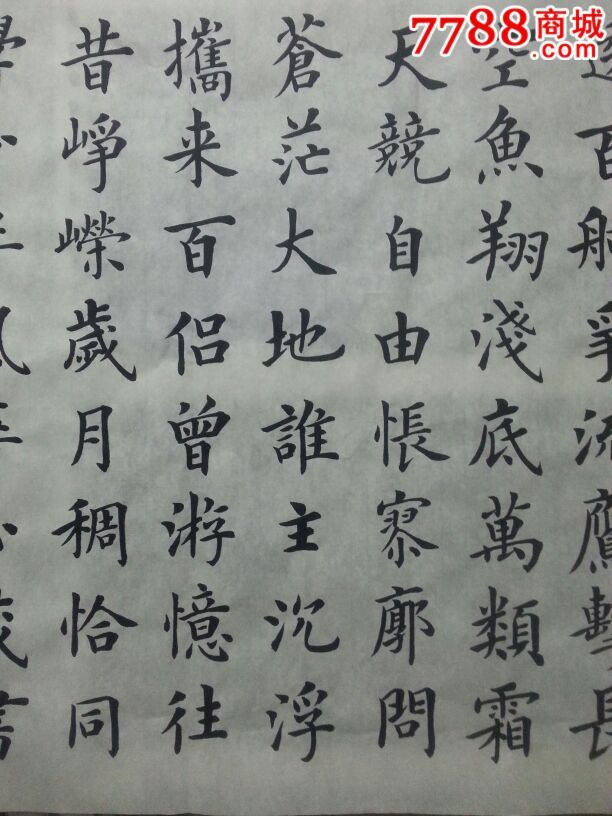 7788商城
.com
透百舸爭流鷹擊長
空魚翔淺底萬類霜
天競自由悵寥廓問
蒼茫大地誰主沉浮
攜来百侣曾游憶往
昔崢嶸歲月稠恰同
學年風書